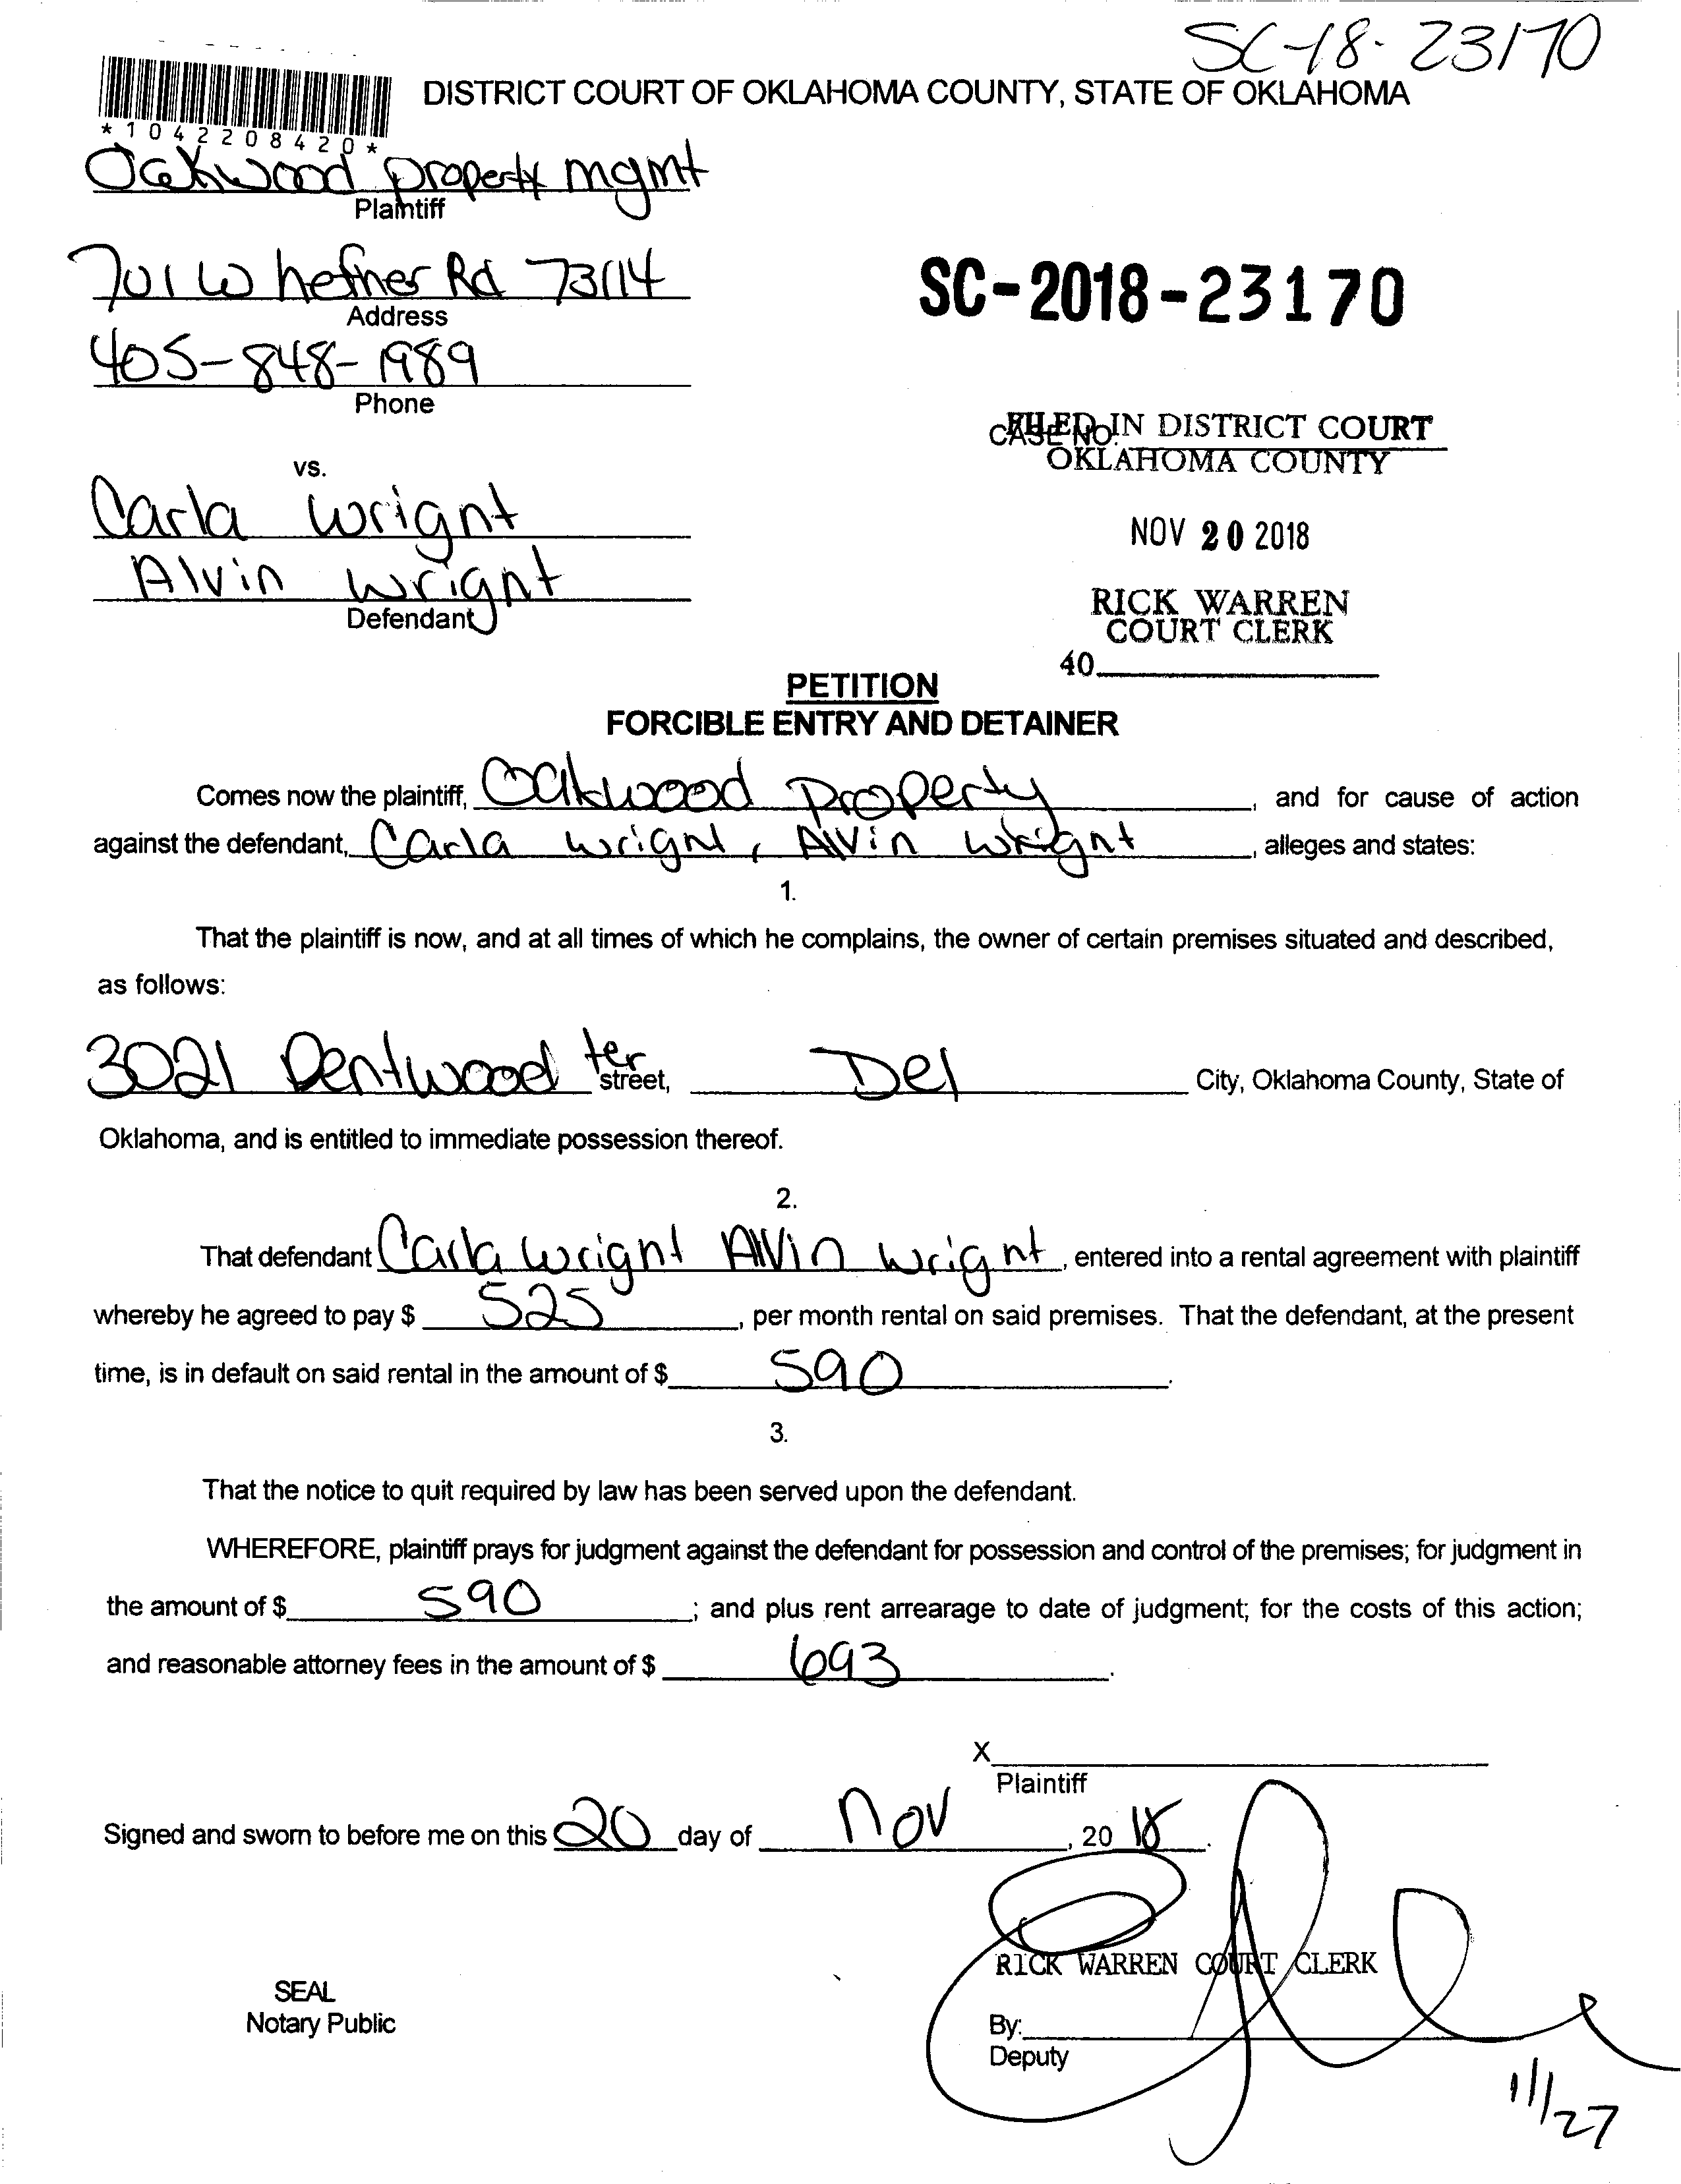 SC-18-23170
DISTRICT COURT OF OKLAHOMA COUNTY, STATE OF OKLAHOMA
*1042208420*
Oakwood property mgmt
Plaintiff
701 W hefner Rd 73114
Address
SC-2018-23170
405-848-1989
Phone
CASE NO.
FILED IN DISTRICT COURT
OKLAHOMA COUNTY
vs.
Carla Wright
NOV 20 2018
Alvin Wright
Defendant
RICK WARREN
COURT CLERK
40
PETITION
FORCIBLE ENTRY AND DETAINER
Comes now the plaintiff, Oakwood Property, and for cause of action
against the defendant, Carla Wright, Alvin Wright, alleges and states:
1.
That the plaintiff is now, and at all times of which he complains, the owner of certain premises situated and described,
as follows:
3021 Dentwood ter street, Del City, Oklahoma County, State of
Oklahoma, and is entitled to immediate possession thereof.
2.
That defendant Carla Wright Alvin Wright, entered into a rental agreement with plaintiff
whereby he agreed to pay $ 525, per month rental on said premises. That the defendant, at the present
time, is in default on said rental in the amount of $ 590.
3.
That the notice to quit required by law has been served upon the defendant.
WHEREFORE, plaintiff prays for judgment against the defendant for possession and control of the premises; for judgment in
the amount of $ 590; and plus rent arrearage to date of judgment; for the costs of this action;
and reasonable attorney fees in the amount of $ 693.
X
Plaintiff
Signed and sworn to before me on this 20 day of Nov, 20 18.
RICK WARREN COURT CLERK
SEAL
Notary Public
By:
Deputy
11/27